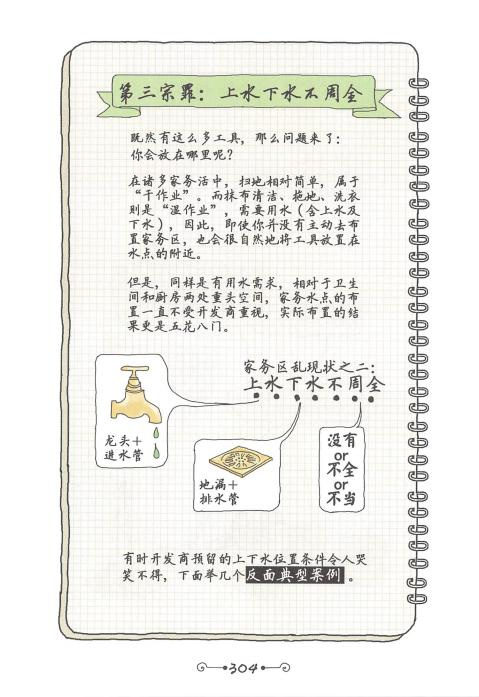 第三宗罪：上水下水不周全
既然有这么多工具，那么问题来了：
你会放在哪里呢？
在诸多家务活中，扫地相对简单，属于
“干作业”。而抹布清洁、拖地、洗衣
则是“湿作业”，需要用水（含上水及
下水），因此，即使你并没有主动去布
置家务区，也会很自然地将工具放置在
水点的附近。
但是，同样是有用水需求，相对于卫生
间和厨房两处重头空间，家务水点的布
置一直不受开发商重视，实际布置的结
果更是五花八门。
家务区乱现状之二：
上水下水不周全
龙头+
进水管
地漏+
排水管
没有
or
不全
or
不当
有时开发商预留的上下水位置条件令人哭
笑不得，下面举几个反面典型案例。
304